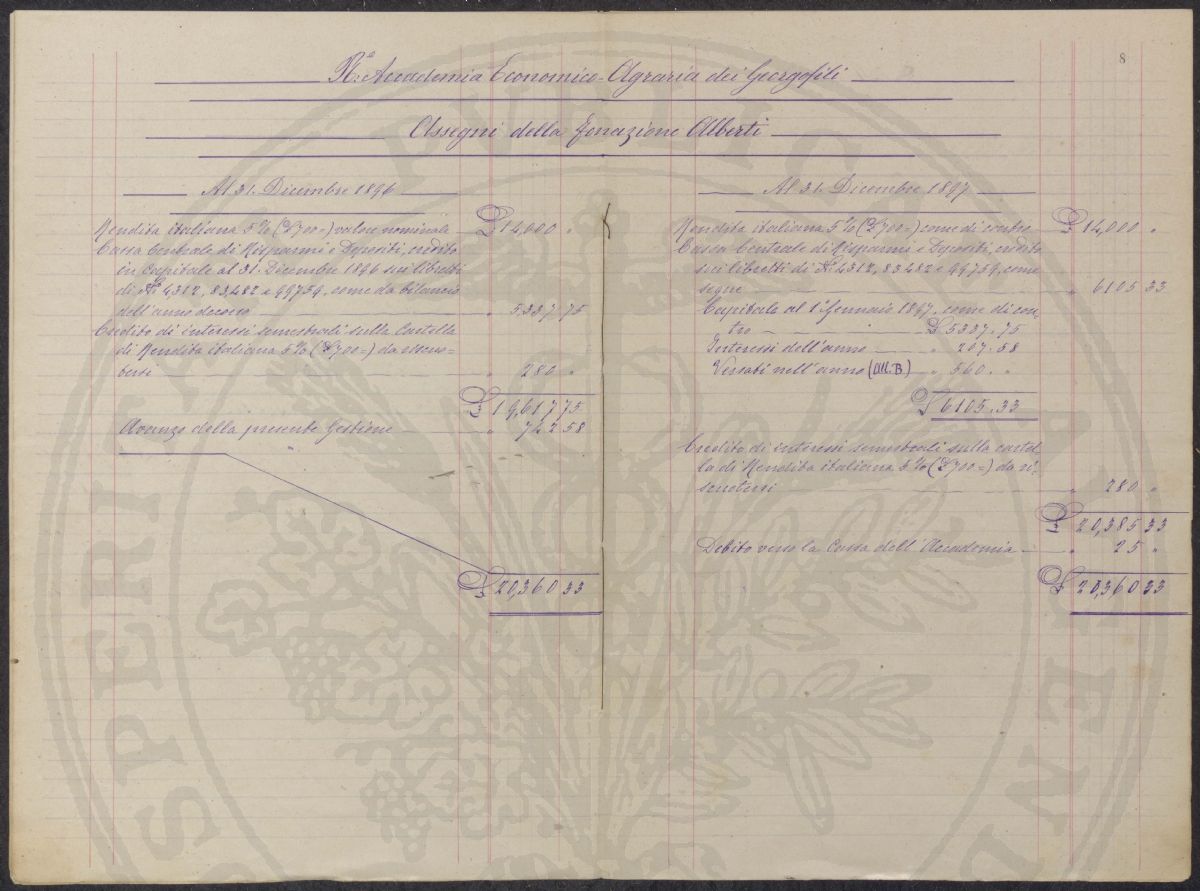 8
R.e Accademia Economico-Agraria dei Georgofili
Assegni della Fonazione Alberti
Al 31. Dicembre 1896
Rendita italiana 5% (£700=) valore nominale £ 14,000 "
Cassa Centrale di Risparmi e Depositi, credito
in Capitale al 31. Dicembre 1896 sui libretti
di Ni 4312, 83,482 e 99759, come da bilancio
dell'anno decorso " 5337 75
Credito di interessi semestrali sulla Cartella
di Rendita italiana 5% (£700=) da riscuo=
tersi " 280 "
£ 19,617 75
Avanzo della presente Gestione " 742 58
£ 20,360 33
Al 31. Dicembre 1897
Rendita italiana 5% (£700=) come di contro £ 14,000 "
Cassa Centrale di Risparmi e Depositi, credito
sui libretti di Ni 4312, 83482 e 99759, come
segue " 6105 33
Capitale al 1° Gennaio 1897, come di con,
tro £ 5337.75
Interessi dell'anno " 207.58
Versati nell'anno (All. B) " 560. "
£ 6105.33
Credito di interessi semestrali sulla cartel,
la di Rendita italiana 5% (£700=) da ri,
scuotersi " 280 "
£ 20,385 33
Debito verso la Cassa dell'Accademia " 25 "
£ 20,360 33
SPERITA PVBLICAE ENDA